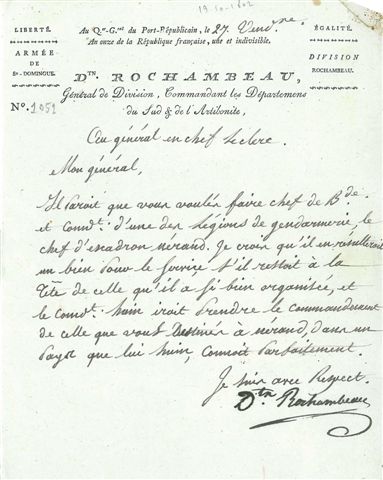 19-10-1802
LIBERTÉ.
ARMÉE
DE
St-DOMINGUE.
No. 1051
Au Qer-Gral du Port-Républicain, le 27. Vend.re
An onze de la République française, une et indivisible.
ÉGALITÉ.
DIVISION
ROCHAMBEAU.
Dtn. ROCHAMBEAU,
Général de Division, Commandant les Départemens
du Sud & de l'Artibonite,
Au général en chef Leclerc.
Mon général,
Il paroit que vous voulés faire chef de B.de
et Comdt. d'une des légions de gendarmerie, le
chef d'escadron nérand. Je crois qu'il en résulteroit
un bien pour le service s'il restoit à la
tête de celle qu'il a si bien organisée, et
le Comdt. huin iroit prendre le commandement
de celle que vous destinés à nérand, dans un
pays que lui huin, connoit parfaitement.
Je suis avec Respect.
Dtn Rochambeau